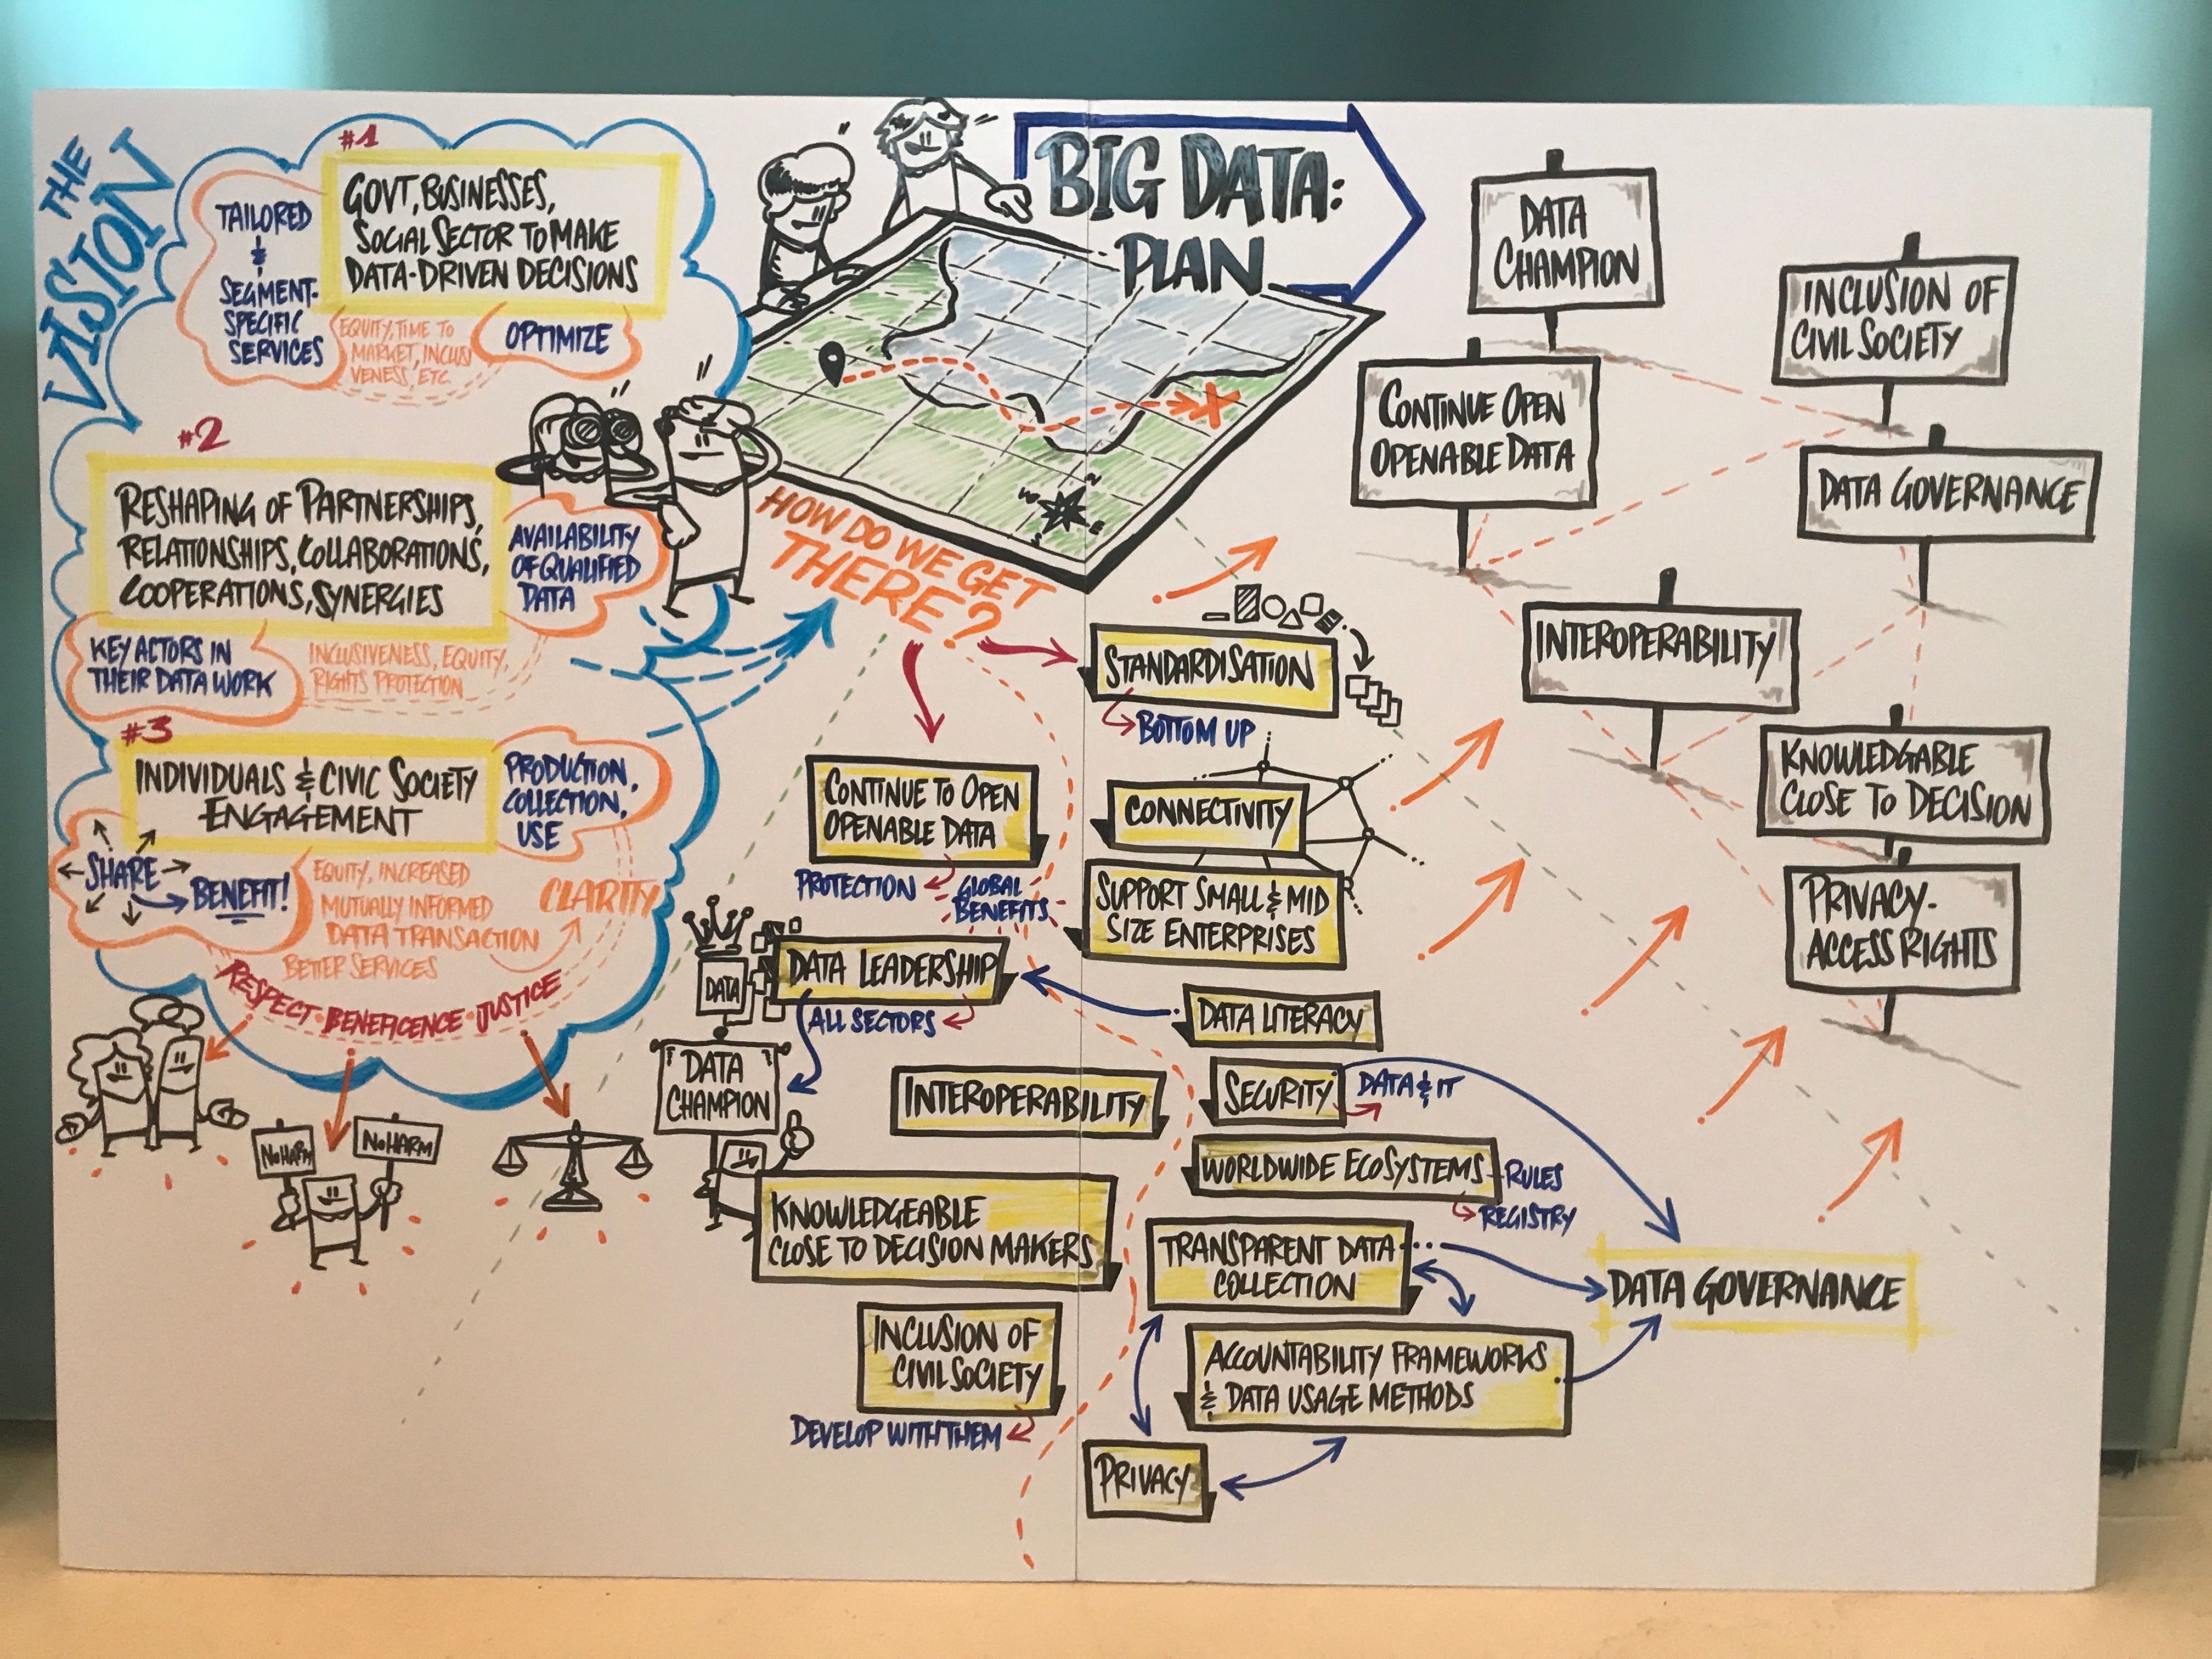 THE
VISION
#1
GOVT, BUSINESSES,
SOCIAL SECTOR TO MAKE
DATA-DRIVEN DECISIONS
TAILORED
&
SEGMENT-
SPECIFIC
SERVICES
EQUITY, TIME TO
MARKET, INCLUSI
VENESS, ETC
OPTIMIZE
#2
RESHAPING OF PARTNERSHIPS,
RELATIONSHIPS, COLLABORATIONS,
COOPERATIONS, SYNERGIES
AVAILABILITY
OF QUALIFIED
DATA
KEY ACTORS IN
THEIR DATA WORK
INCLUSIVENESS, EQUITY,
RIGHTS PROTECTION
#3
INDIVIDUALS & CIVIC SOCIETY
ENGAGEMENT
PRODUCTION,
COLLECTION,
USE
SHARE
BENEFIT!
EQUITY, INCREASED
MUTUALLY INFORMED
DATA TRANSACTION
BETTER SERVICES
CLARITY
RESPECT · BENEFICENCE · JUSTICE
NO HARM
NO HARM
BIG DATA:
PLAN
N
W
E
S
HOW DO WE GET
THERE?
STANDARDISATION
BOTTOM UP
CONTINUE TO OPEN
OPENABLE DATA
PROTECTION
GLOBAL
BENEFITS
CONNECTIVITY
SUPPORT SMALL & MID
SIZE ENTERPRISES
DATA
DATA LEADERSHIP
ALL SECTORS
DATA LITERACY
DATA
CHAMPION
INTEROPERABILITY
SECURITY
DATA & IT
WORLDWIDE ECOSYSTEMS
RULES
REGISTRY
KNOWLEDGEABLE
CLOSE TO DECISION MAKERS
TRANSPARENT DATA
COLLECTION
DATA GOVERNANCE
INCLUSION OF
CIVIL SOCIETY
DEVELOP WITH THEM
ACCOUNTABILITY FRAMEWORKS
& DATA USAGE METHODS
PRIVACY
DATA
CHAMPION
INCLUSION OF
CIVIL SOCIETY
CONTINUE OPEN
OPENABLE DATA
DATA GOVERNANCE
INTEROPERABILITY
KNOWLEDGABLE
CLOSE TO DECISION
PRIVACY-
ACCESS RIGHTS